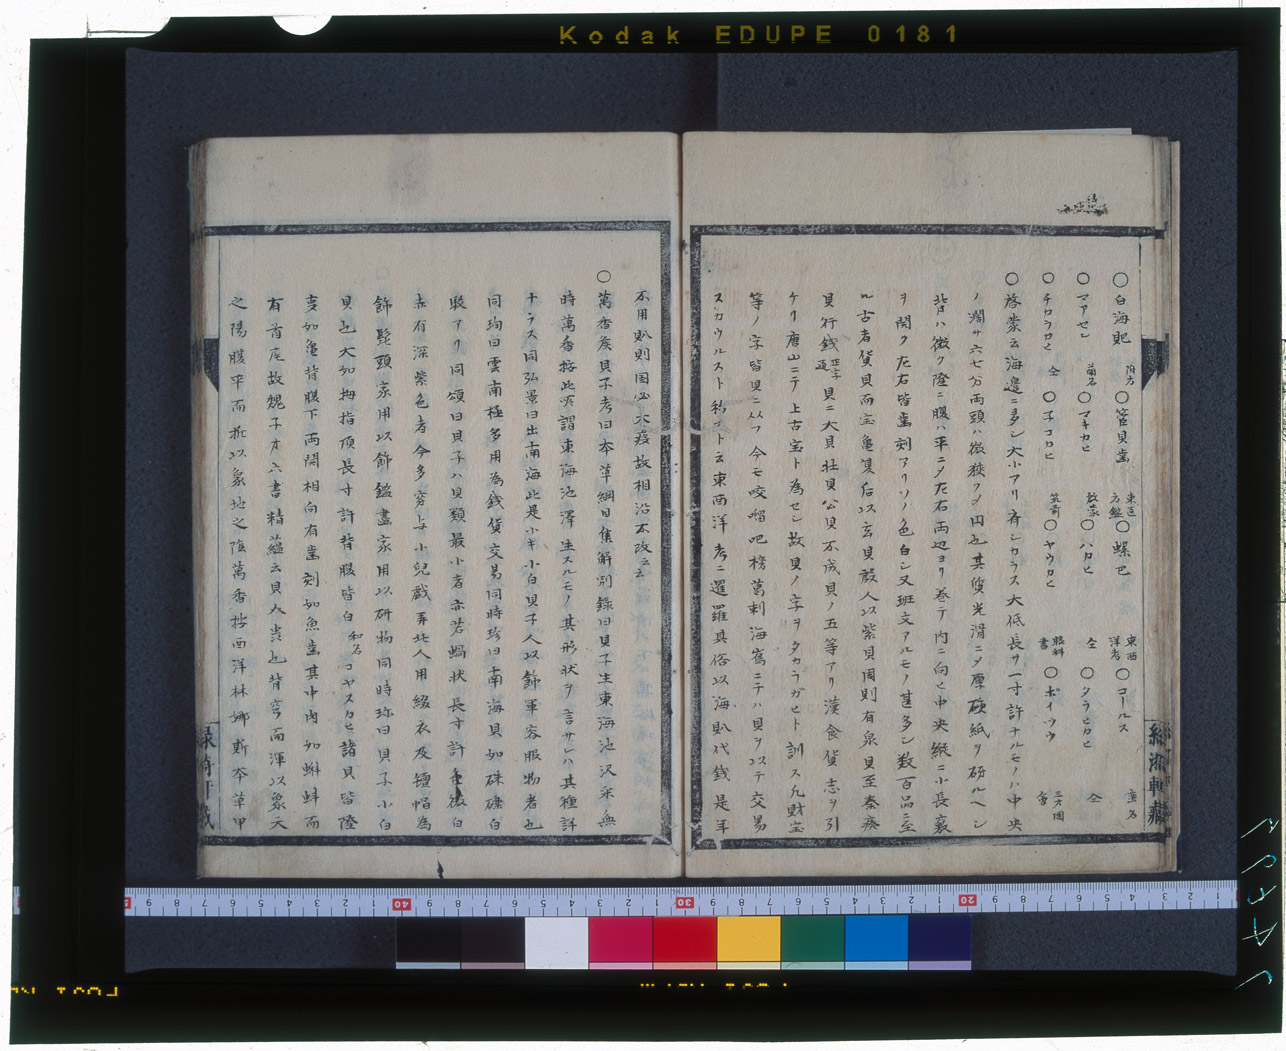 Kodak EDUPE 0181
○白海肥 附方 ○管貝歯 東医宝鑑 ○螺巴 東西洋考 ○コールス 蛮名
○マアセン 蘭名 ○マキカヒ 啓蒙 ○ハカヒ 仝 ○タラヒカヒ 仝
○チカラカヒ 仝 ○子コカヒ 筑前 ○ヤウカヒ 眼科書 ○ボイウウ
○啓蒙云海邉ニ多シ大小アリ斉シカラス大低長サ一寸許ナルモノハ中央
ノ濶サ六七分両頭ハ微狭クメ円也其質光滑ニメ厚硬紙ヲ研ルヘシ
背ハ微ク隆ニ腹ハ平ニメ左右両辺ヨリ巻テ内ニ向ヒ中央縦ニ小長竅
ヲ開ク左右皆歯刻アリソノ色白シ又班文アルモノ甚多シ数百品ニ至
ル古者貨貝而宝亀夏后以玄貝殷人以紫貝周則有泉貝至秦廃
貝行銭 貝ニ大貝壮貝公貝不成貝ノ五等アリ漢食貨志ヲ引
ケリ唐山ニテ上古宝ト為セシ故貝ノ字ヲタカラガヒト訓ス凡財宝
等ノ字皆貝ニ从フ今モ咬𠺕吧榜葛剌海嶌ニテハ貝ヲ以テ交易
スカウルスト称スト云東西洋考ニ暹羅其俗以海𧵅代銭是年
不用𧵅則国必大疫故相沿不改云云
○萬香矦貝子考曰本草綱目集解別録曰貝子生東海池沢采無
時萬香按此所謂東海池澤生スルモノ其形状ヲ言サレハ其種詳
ナラス同弘景曰出南海此是小キ小白貝子人以飾軍容服物者也
同珣曰雲南極多用為銭貨交易同時珍曰南海貝如硃磲白
駮アリ同頌曰貝子ハ貝類最小者亦若蝸状長寸許色微白
赤有深紫色者今多穿与小兒戯弄北人用綴衣及氊帽為
飾髭頭家用以飾鑑畫家用以研物同時珍曰貝子小白
貝也大如拇指頂長寸許背腹皆白 和名コヤスカヒ 諸貝皆隆
莫如亀背腹下両開相向有歯刻如魚歯其中肉如蝌蚪而
有首尾故魏子才六書精蘊云貝介虫也背穹而渾以象天
之陽腹平而拆以象地之陰萬香按西洋林娜斯本草甲